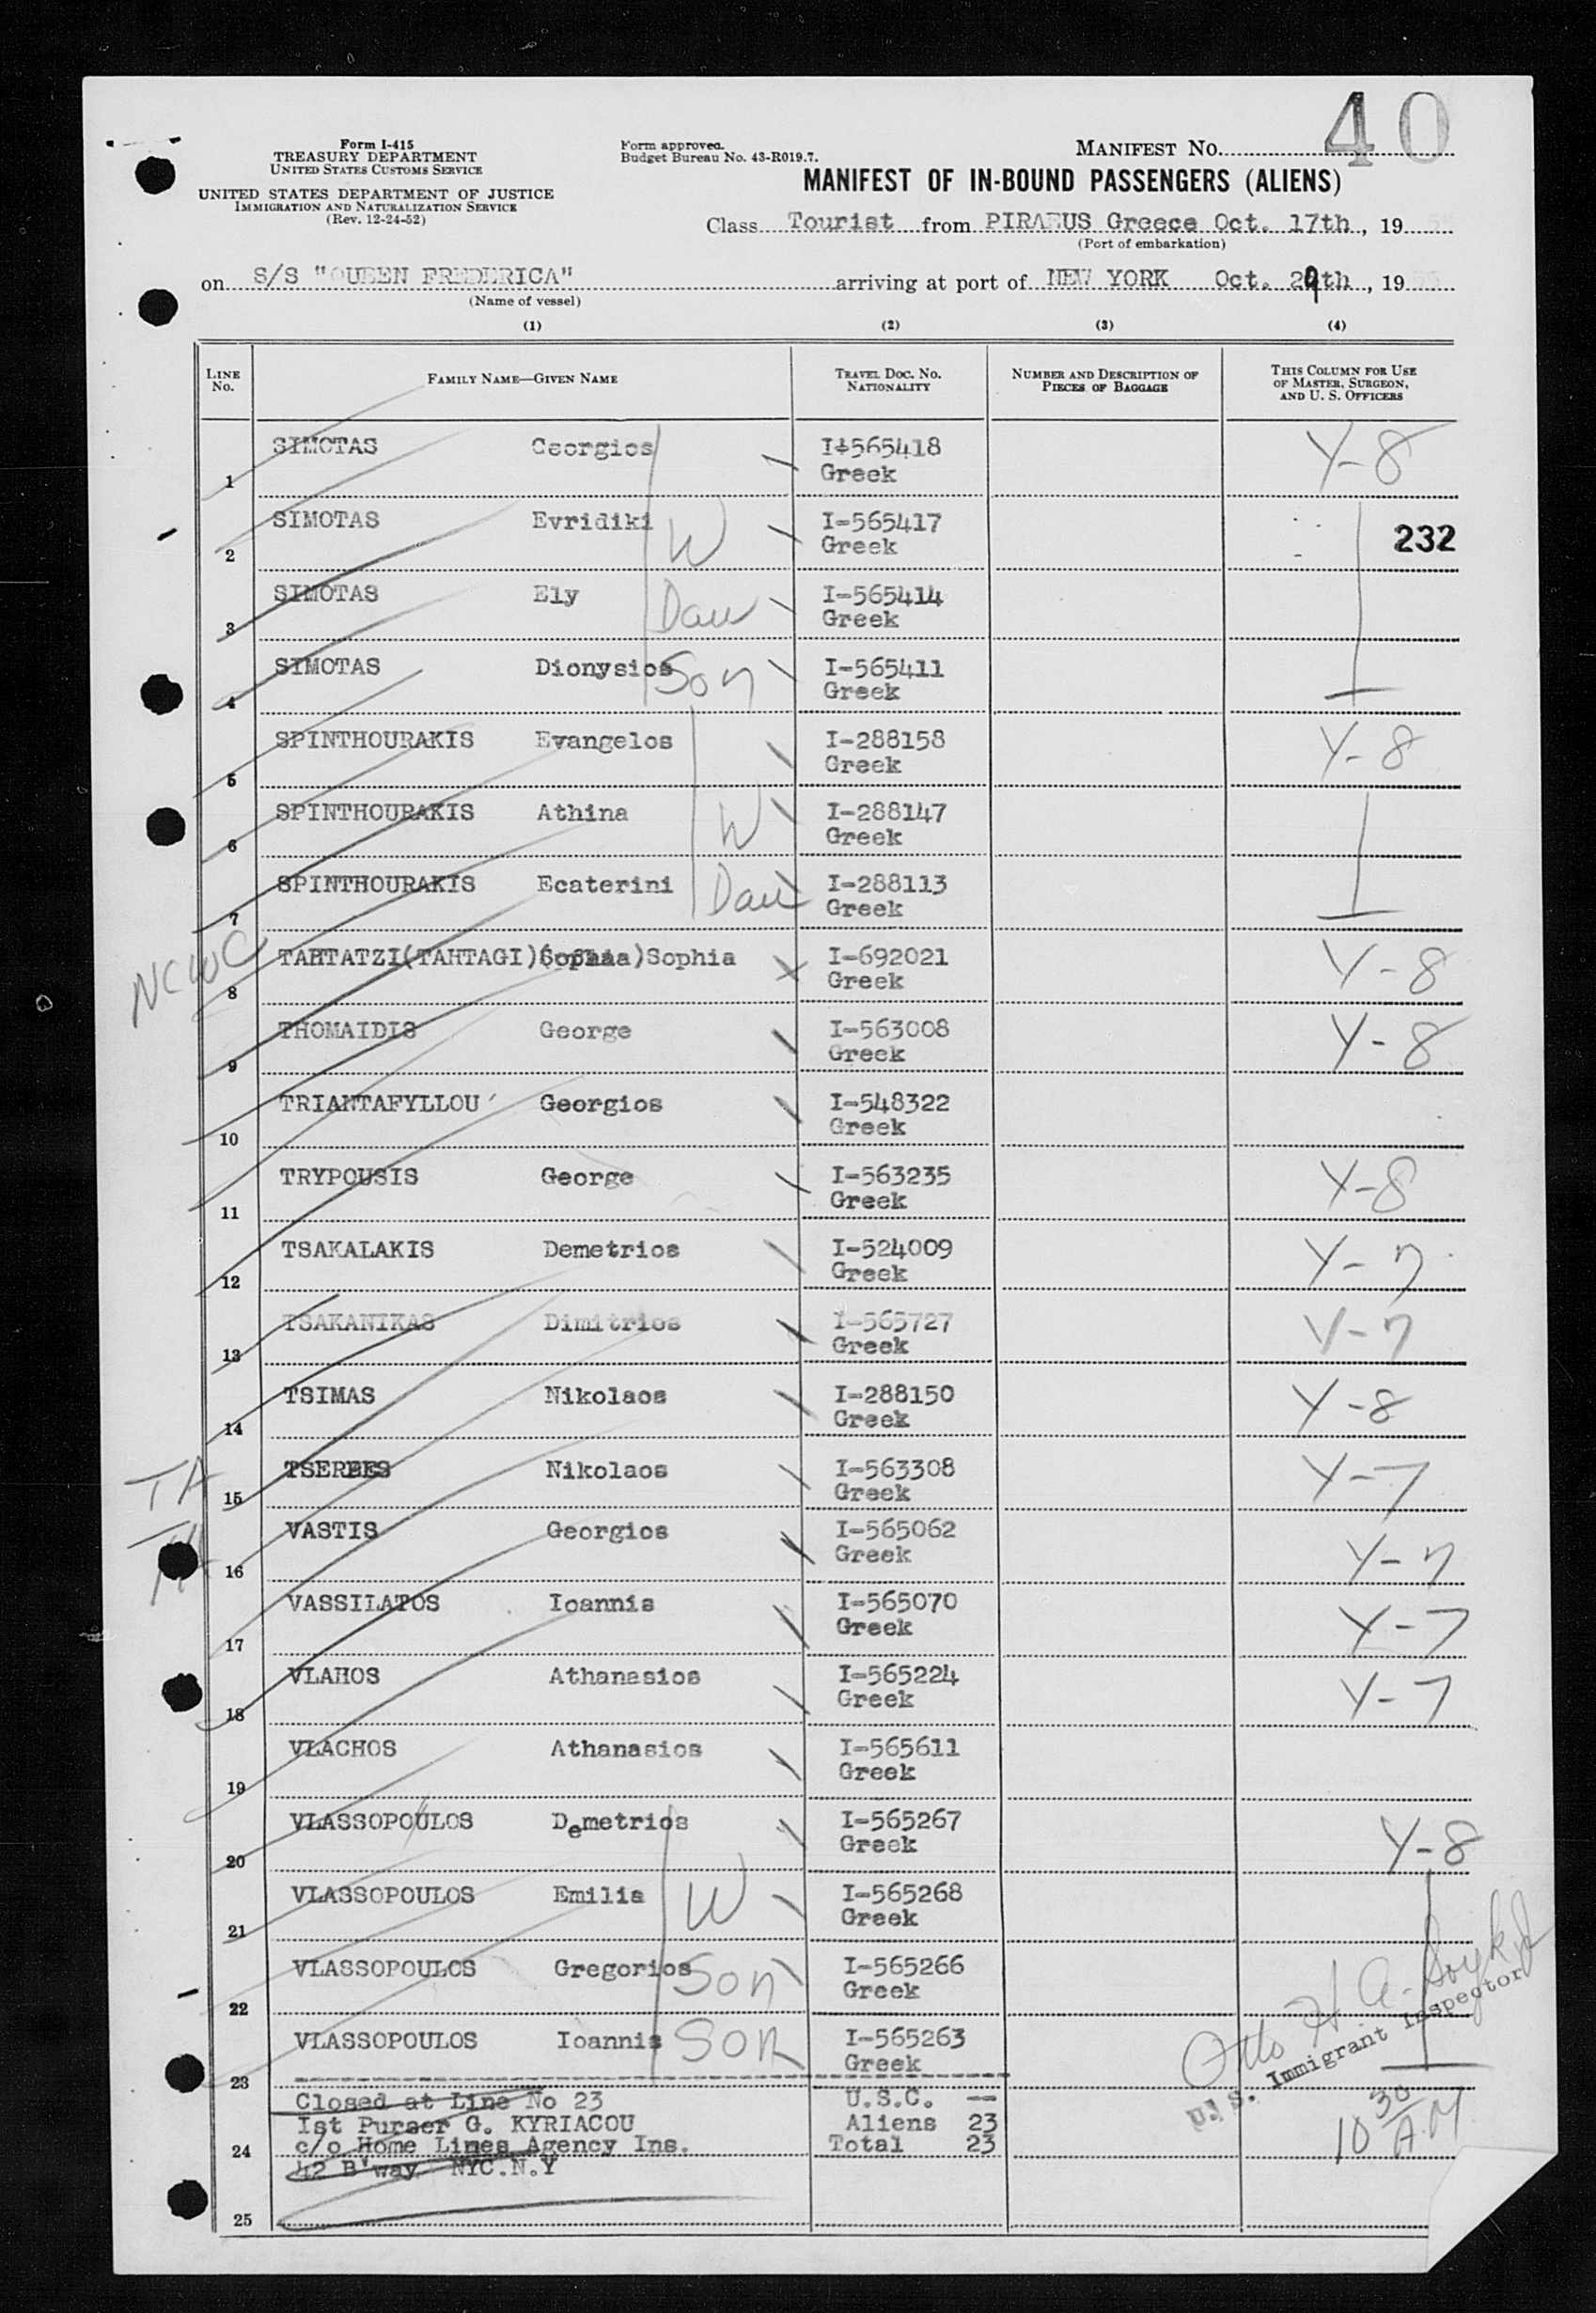 40
Form I-415
TREASURY DEPARTMENT
UNITED STATES CUSTOMS SERVICE
UNITED STATES DEPARTMENT OF JUSTICE
IMMIGRATION AND NATURALIZATION SERVICE
(Rev. 12-24-52)
Form approved.
Budget Bureau No. 43-R019.7.
MANIFEST NO.
MANIFEST OF IN-BOUND PASSENGERS (ALIENS)
Class Tourist from PIRAEUS Greece Oct. 17th, 19
(Port of embarkation)
on S/S "QUEEN FREDERICA" arriving at port of NEW YORK Oct. 29th, 19
(Name of vessel)
(1) (2) (3) (4)
LINE NO. FAMILY NAME—GIVEN NAME TRAVEL DOC. NO. NATIONALITY NUMBER AND DESCRIPTION OF PIECES OF BAGGAGE THIS COLUMN FOR USE OF MASTER, SURGEON, AND U. S. OFFICERS
1 SIMOTAS Georgios I-565418 Greek Y-8
2 SIMOTAS Evridiki W I-565417 Greek 232
3 SIMOTAS Ely Dau I-565414 Greek
4 SIMOTAS Dionysios Son I-565411 Greek
5 SPINTHOURAKIS Evangelos I-288158 Greek Y-8
6 SPINTHOURAKIS Athina W I-288147 Greek
7 SPINTHOURAKIS Ecaterini Dau I-288113 Greek
NCWC
8 TAHTATZI(TAHTAGI) Sophia I-692021 Greek Y-8
9 THOMAIDIS George I-563008 Greek Y-8
10 TRIANTAFYLLOU Georgios I-548322 Greek
11 TRYPOUSIS George I-563235 Greek Y-8
12 TSAKALAKIS Demetrios I-524009 Greek Y-7
13 TSAKANIKAS Dimitrios I-565727 Greek Y-7
14 TSIMAS Nikolaos I-288150 Greek Y-8
TA
15 Nikolaos I-563308 Greek Y-7
16 VASTIS Georgios I-565062 Greek Y-7
17 VASSILATOS Ioannis I-565070 Greek Y-7
18 VLAHOS Athanasios I-565224 Greek Y-7
19 VLACHOS Athanasios I-565611 Greek
20 VLASSOPOULOS Demetrios I-565267 Greek Y-8
21 VLASSOPOULOS Emilia W I-565268 Greek
22 VLASSOPOULOS Gregorios Son I-565266 Greek
23 VLASSOPOULOS Ioannis Son I-565263 Greek
Otto H A.
U. S. Immigrant Inspector
10 30 A.M
Closed at Line No 23 U.S.C. --
Ist Purser G. KYRIACOU Aliens 23
24 c/o Home Lines Agency Ins. Total 23
42 B'way NYC.N.Y
25